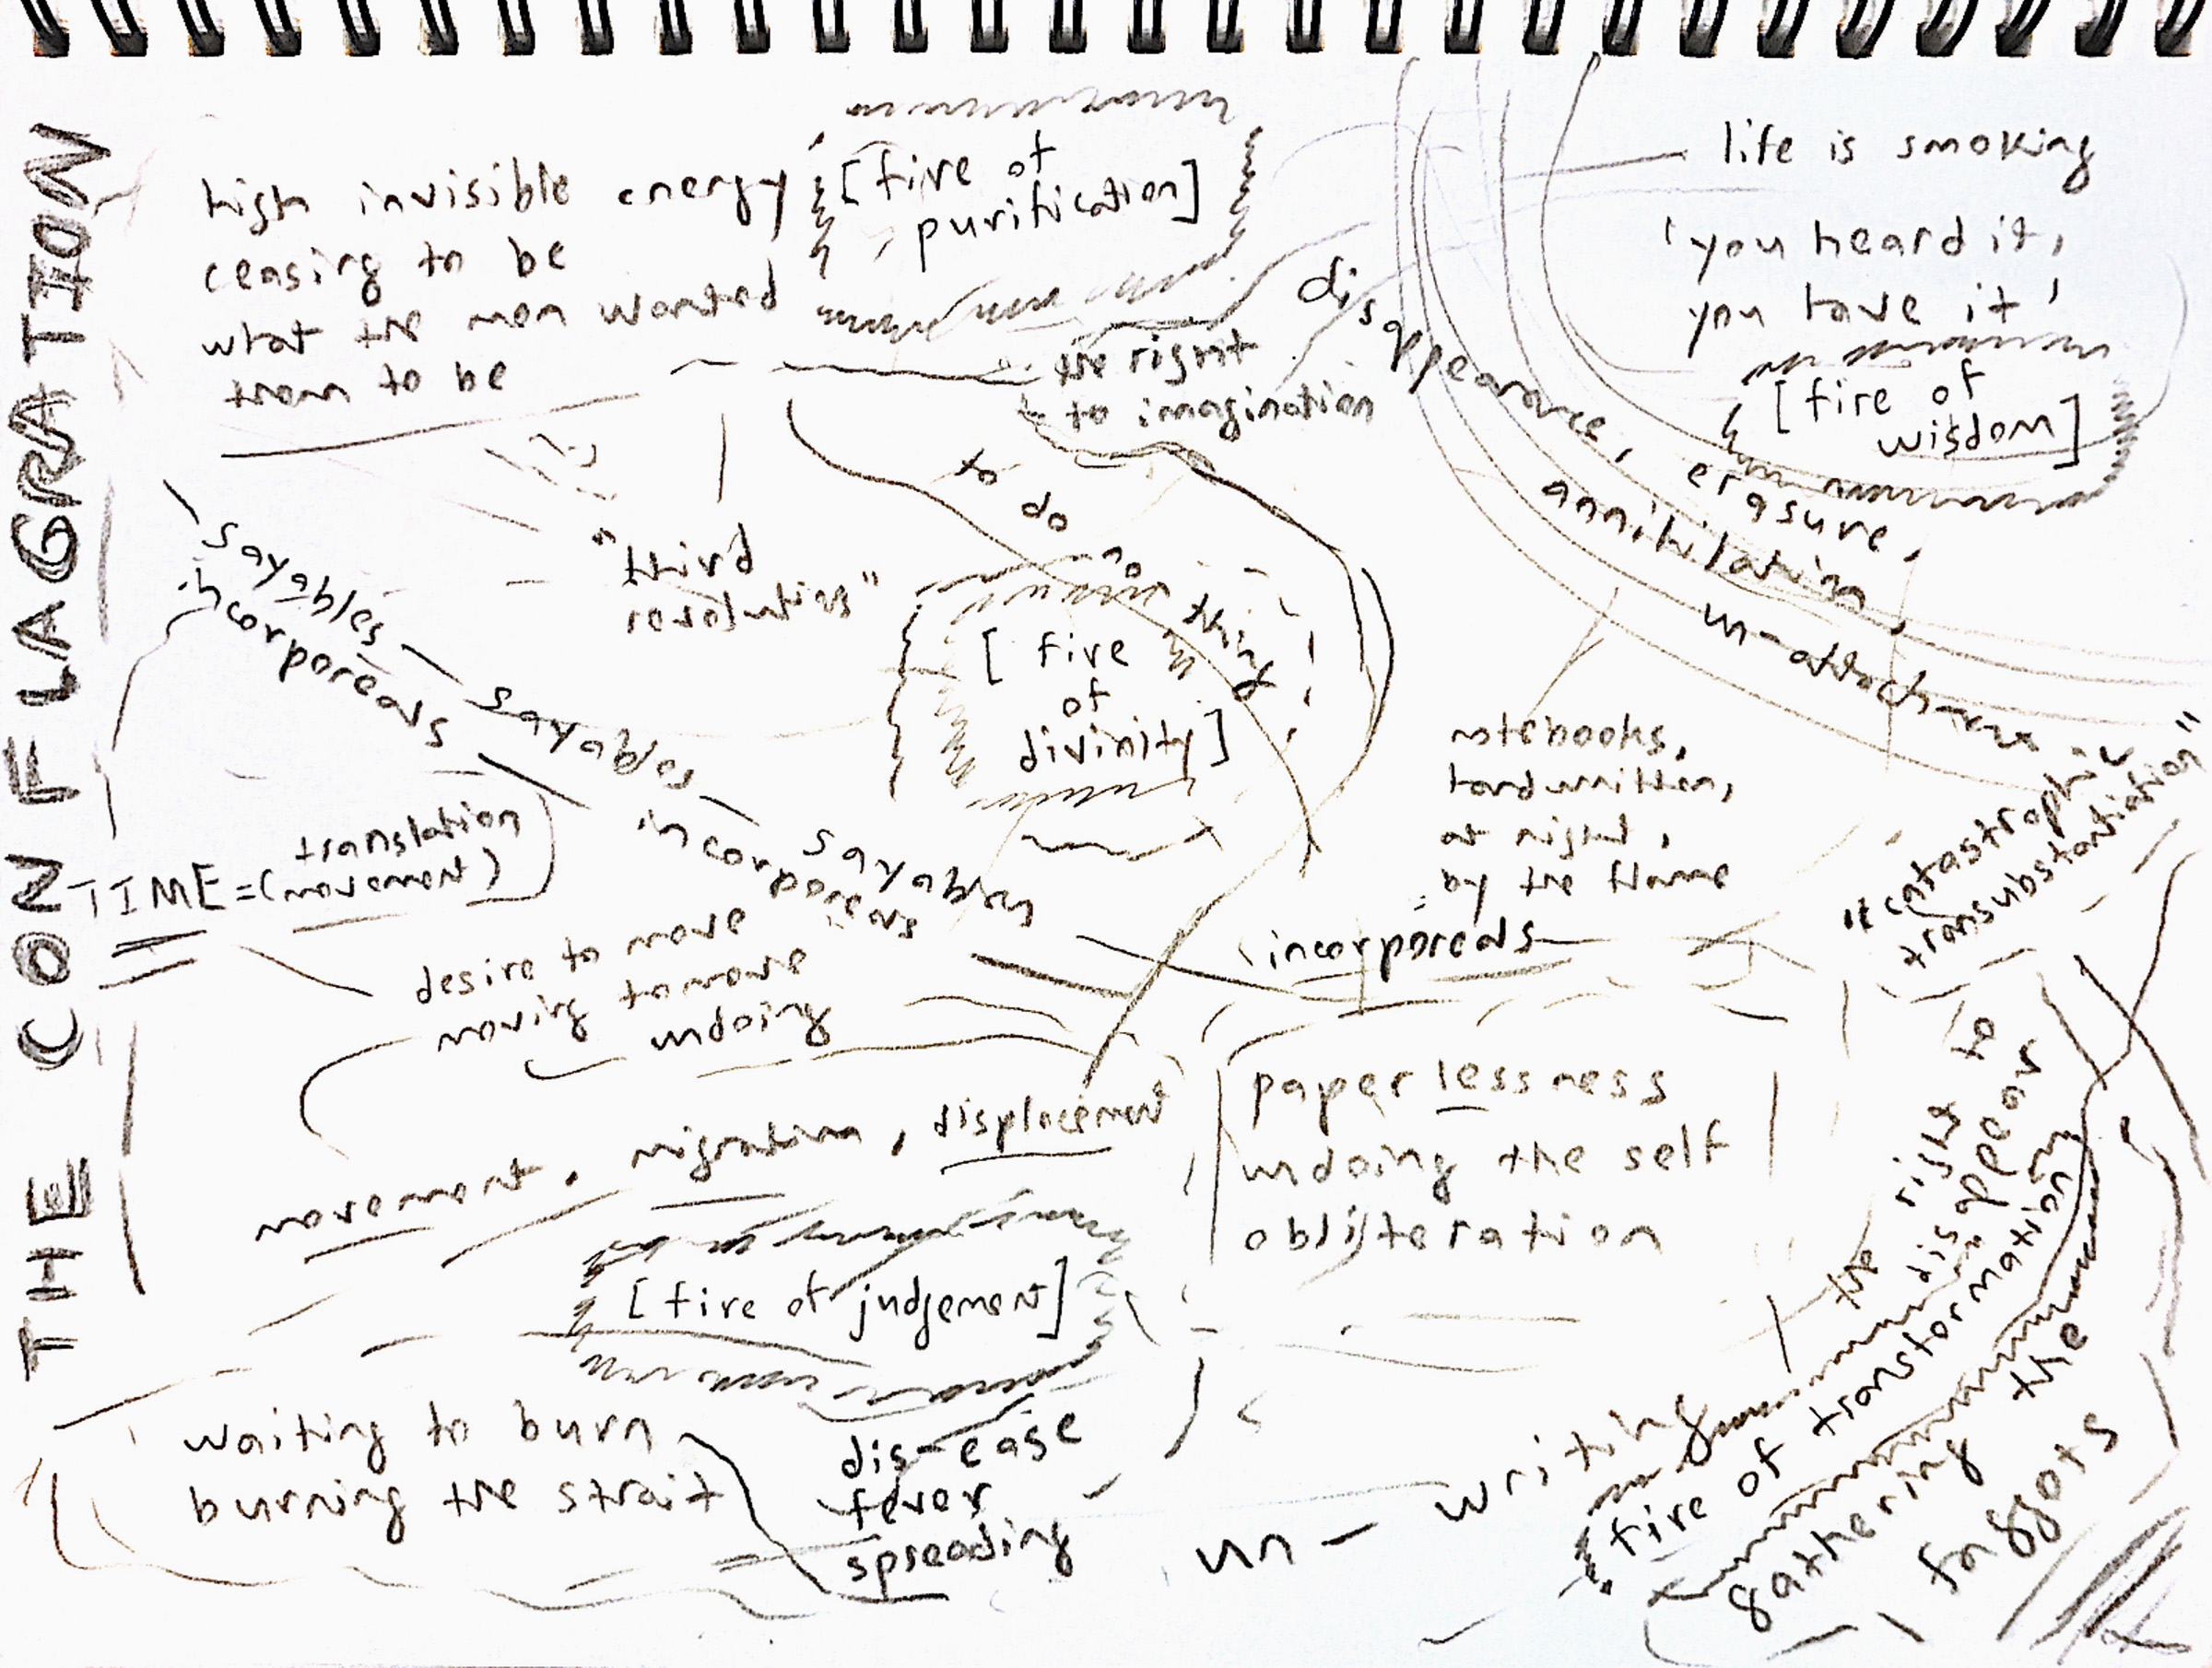 THE CONFLAGRATION
high invisible energy
ceasing to be
what the men wanted
them to be
[fire of
purification]
the right
to imagination
disappearance, erasure,
annihilation,
un-attachment
life is smoking
'you heard it,
you have it'
[fire of
wisdom]
"third
revolution"
to do no thing
[fire
of
divinity]
sayables — sayables — sayables
incorporeals — incorporeals
TIME = (translation
movement)
desire to move
moving to move
undoing
notebooks,
handwritten,
at night,
by the flame
incorporeals
"catastrophic
transubstantiation"
movement, migration, displacement
paperlessness
undoing the self
obliteration
the right to
disappear
[fire of judgement]
waiting to burn
burning the strait
dis-ease
fever
spreading
un-writing
[fire of transformation]
gathering the
faggots